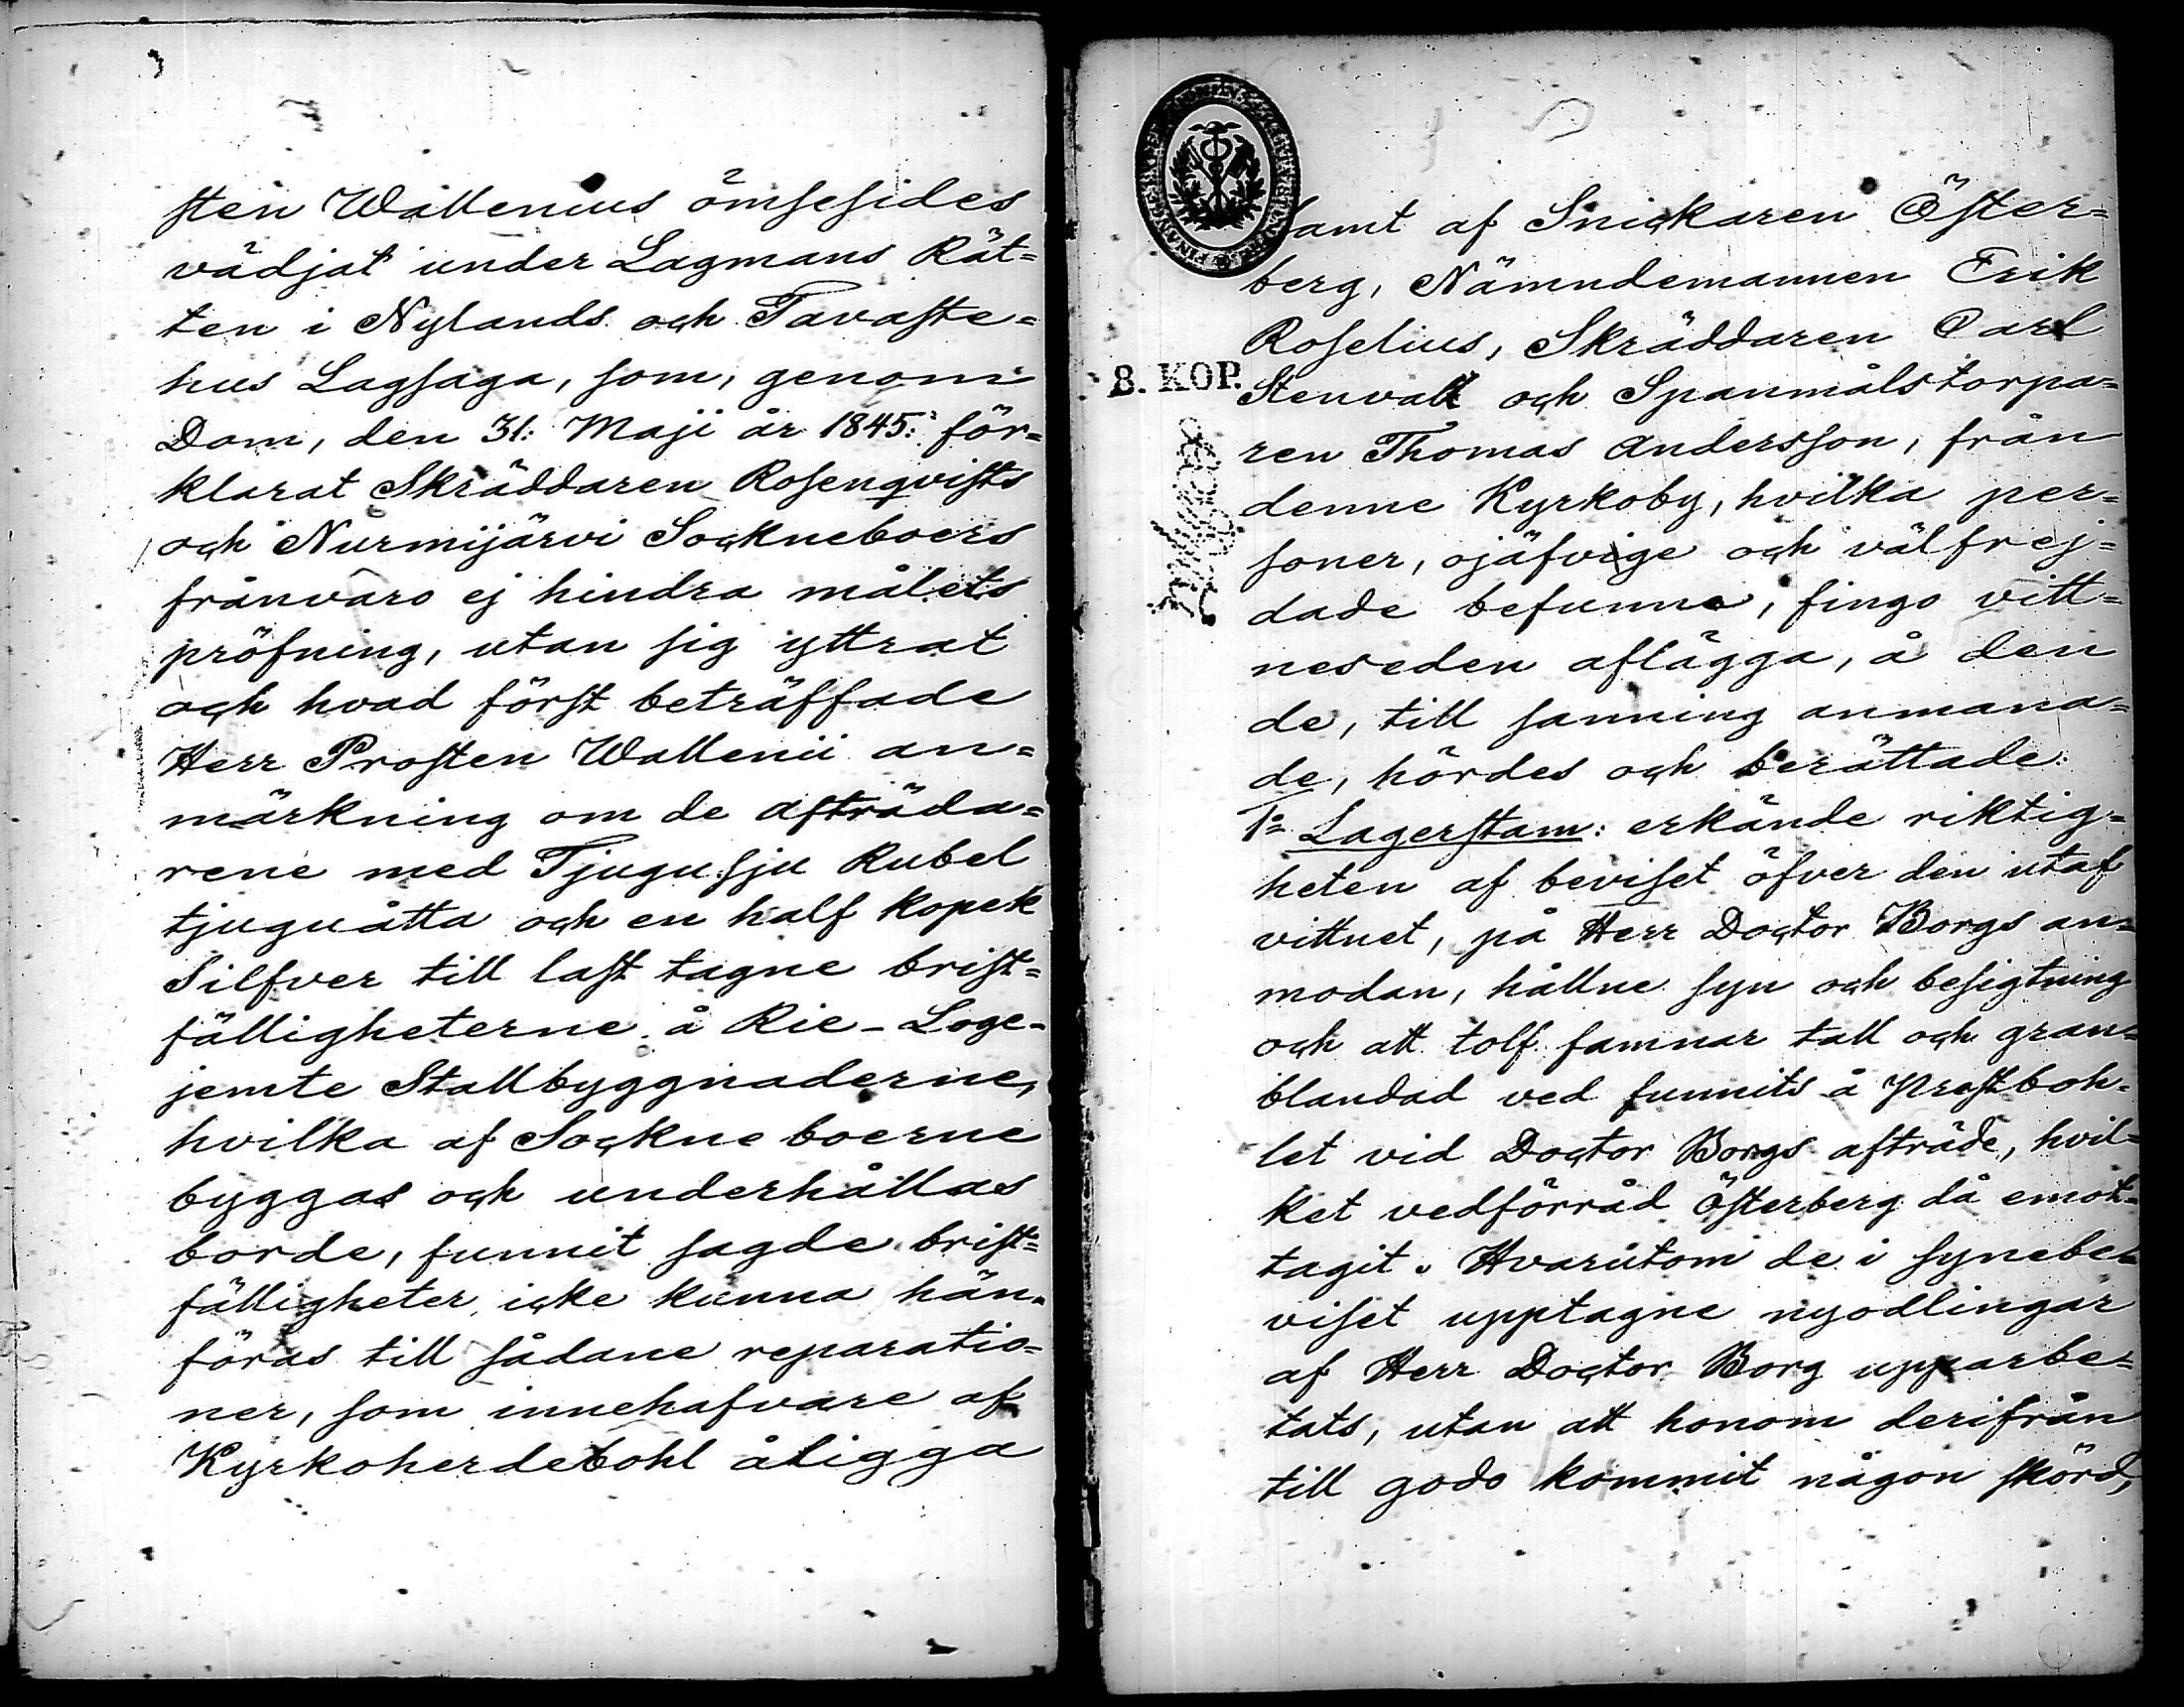 sten Wallenius ömsesides
vädjat under Lagmans Rät=
ten i Nylands och Tavaste=
hus Lagsaga, som, genom
Dom, den 31: Maji år 1845: för=
klarat Skräddaren Rosenqvists
och Nurmijärvi Sockneboers
frånvaro ej hindra målets
pröfning, utan sig yttrat
och hvad först beträffade
Herr Prosten Wallenii an=
märkning om de afträda=
rene med Tjugusju Rubel
tjuguåtta och en half kopek
Silfver till last tagne brist=
fälligheterne å Rie- Loge-
jemte Stallbyggnaderne,
hvilka af Sockneboerne
byggas och underhållas
borde, funnit sagde brist=
fälligheter icke kunna hän=
föras till sådane reparatio=
ner, som innehafvare af
Kyrkoherdebohl åligga
samt af Snickaren Öster=
berg, Nämndemannen Erik
Roselius, Skräddaren Carl
8. KOP.
Stenvall och Spanmålstorpa=
ren Thomas Andersson, från
denne Kyrkoby, hvilka per=
soner, ojäfvige och välfrej=
dade befunne, fingo vitt=
neseden aflägga, å den
de, till sanning anmana=
de, hördes och berättade:
1o Lagerstam: erkände riktig=
heten af beviset öfver den utaf
vittnet, på Herr Doctor Borgs an=
modan, hållne syn och besigtning
och att tolf famnar tall och gran=
blandad ved funnits å Prestboh=
let vid Doctor Borgs afträde, hvil=
ket vedförråd Österberg då emot=
tagit. Hvarutom de i synebe=
viset upptagne nyodlingar
af Herr Doctor Borg upparbe=
tats, utan att honom derifrån
till godo kommit någon skörd,